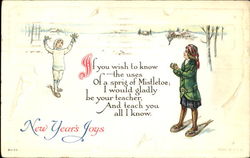 If you wish to know
—the uses
Of a sprig of Mistletoe;
I would gladly
be your teacher,
And teach you
all I know.
New Year's Joys